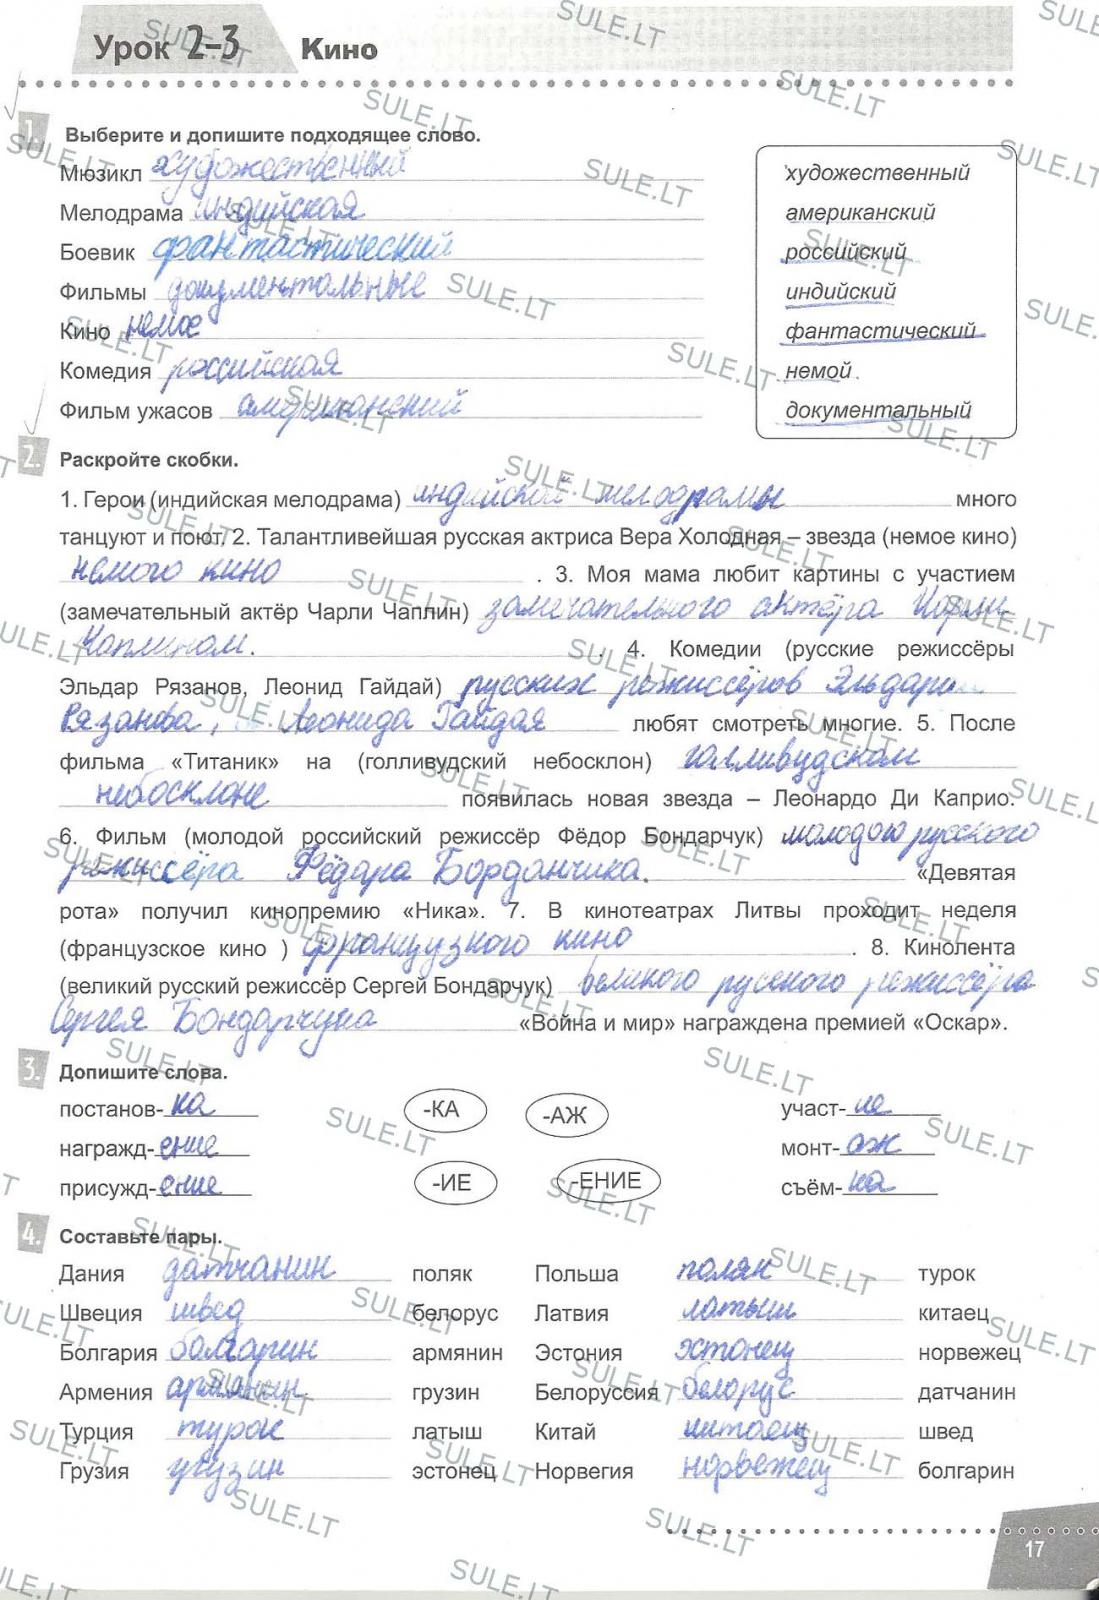 Урок 2-3 Кино
1. Выберите и допишите подходящее слово.
Мюзикл художественный
художественный
Мелодрама индийская
американский
Боевик фантастический
российский
Фильмы документальные
индийский
Кино немое
фантастический
Комедия российская
немой
Фильм ужасов американский
документальный
2. Раскройте скобки.
1. Герои (индийская мелодрама) индийской мелодрамы много
танцуют и поют. 2. Талантливейшая русская актриса Вера Холодная – звезда (немое кино)
немого кино . 3. Моя мама любит картины с участием
(замечательный актёр Чарли Чаплин) замечательного актёра Чарли
Чаплином. . 4. Комедии (русские режиссёры
Эльдар Рязанов, Леонид Гайдай) русских режиссёров Эльдара
Рязанова, Леонида Гайдая любят смотреть многие. 5. После
фильма «Титаник» на (голливудский небосклон) голливудском
небосклоне появилась новая звезда – Леонардо Ди Каприо.
6. Фильм (молодой российский режиссёр Фёдор Бондарчук) молодого русского
режиссёра Фёдара Борданчика. «Девятая
рота» получил кинопремию «Ника». 7. В кинотеатрах Литвы проходит неделя
(французское кино ) французкого кино . 8. Кинолента
(великий русский режиссёр Сергей Бондарчук) великого русского режиссёра
Сергея Бондарчука «Война и мир» награждена премией «Оскар».
3. Допишите слова.
постанов-ка -КА -АЖ участ-ие
награжд-ение монт-аж
присужд-ение -ИЕ -ЕНИЕ съём-ка
4. Составьте пары.
Дания датчанин поляк Польша поляк турок
Швеция швед белорус Латвия латыш китаец
Болгария болгарин армянин Эстония эстонец норвежец
Армения армянин грузин Белоруссия белорус датчанин
Турция турок латыш Китай китаец швед
Грузия грузин эстонец Норвегия норвежец болгарин
17
SULE.LT